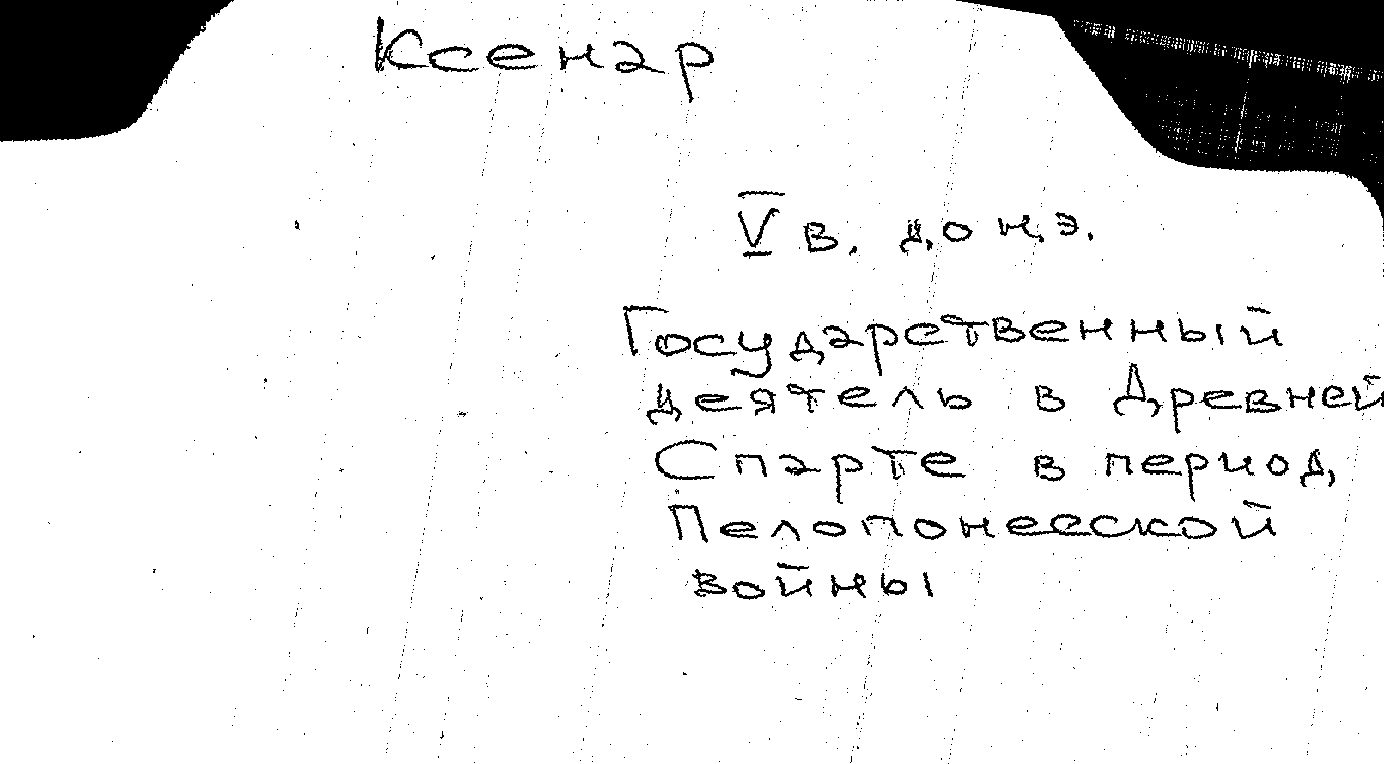 Ксенар
V в. до н.э.
Государственный
деятель в Древней
Спарте в период
Пелопонесской
войны